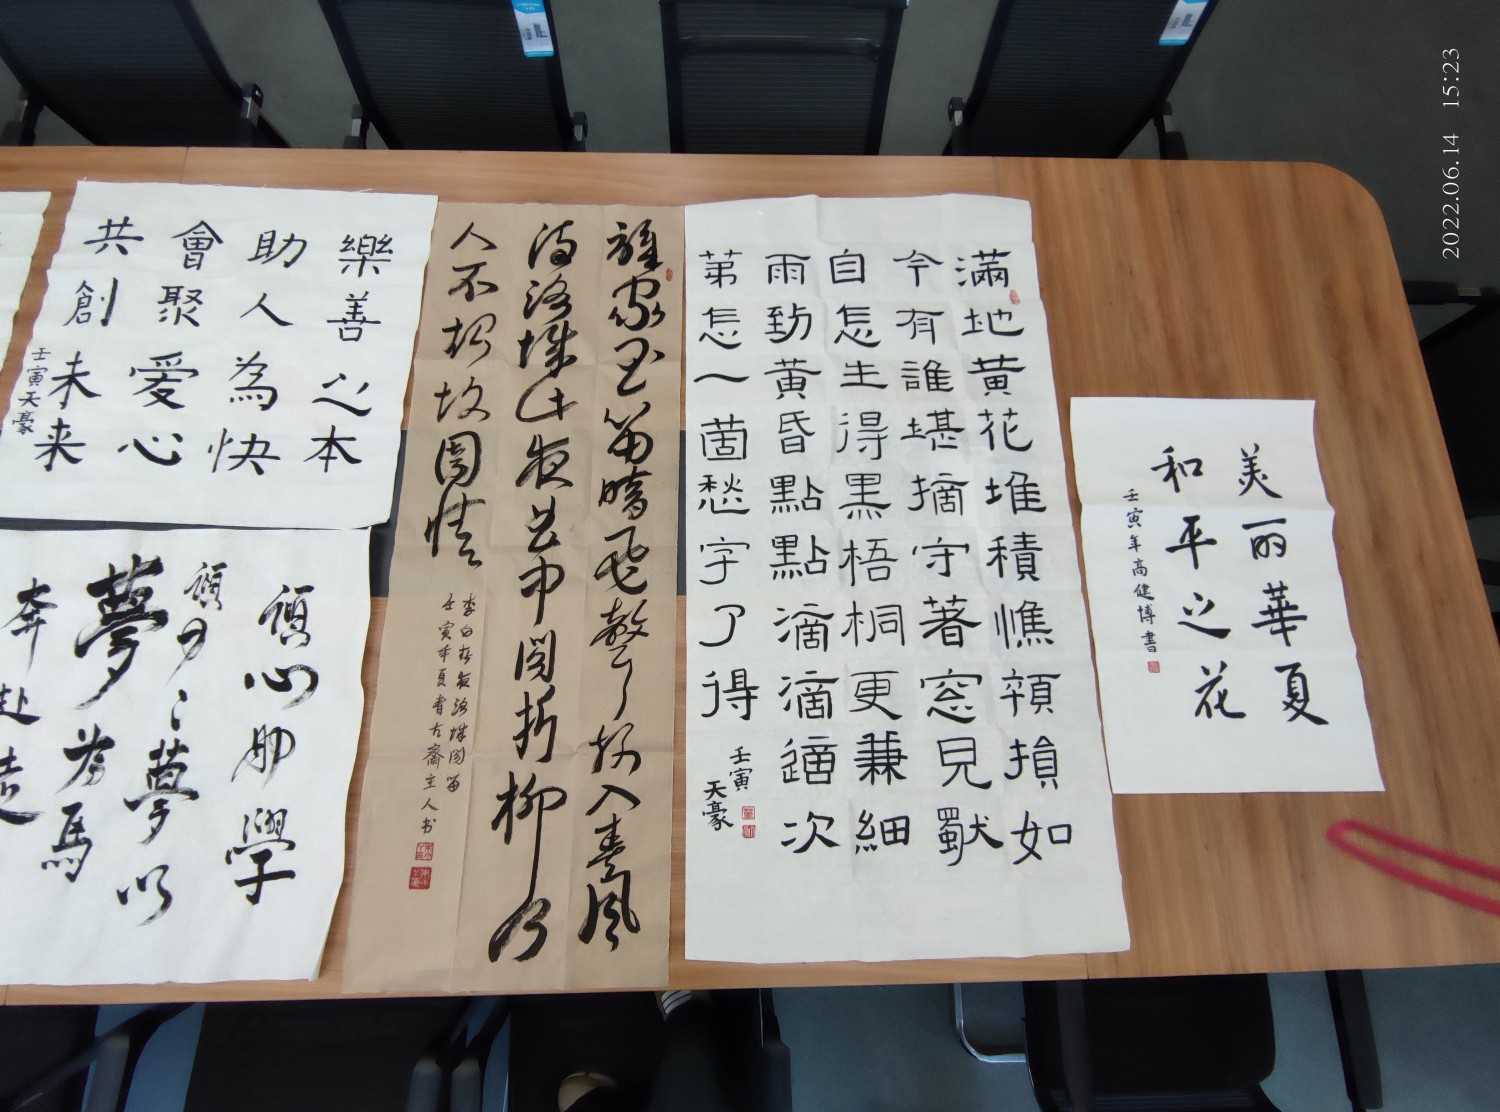 美丽華夏
和平之花
壬寅年高健博書
滿地黃花堆積憔顇損如
今有誰堪摘守著窓見獸
自怎生得黑梧桐更兼細
雨到黃昏點點滴滴適次
第怎一箇愁字了得
壬寅
天豪
誰家玉笛暗飛聲散入春風
滿洛城此夜曲中聞折柳何
人不起故園情
李白春夜洛城聞笛
壬寅年夏書古齋主人书
樂善之本
助人為快
會聚愛心
共創未来
壬寅天豪
心助學
夢以
夢為馬
奔赴
2022.06.14 15:23